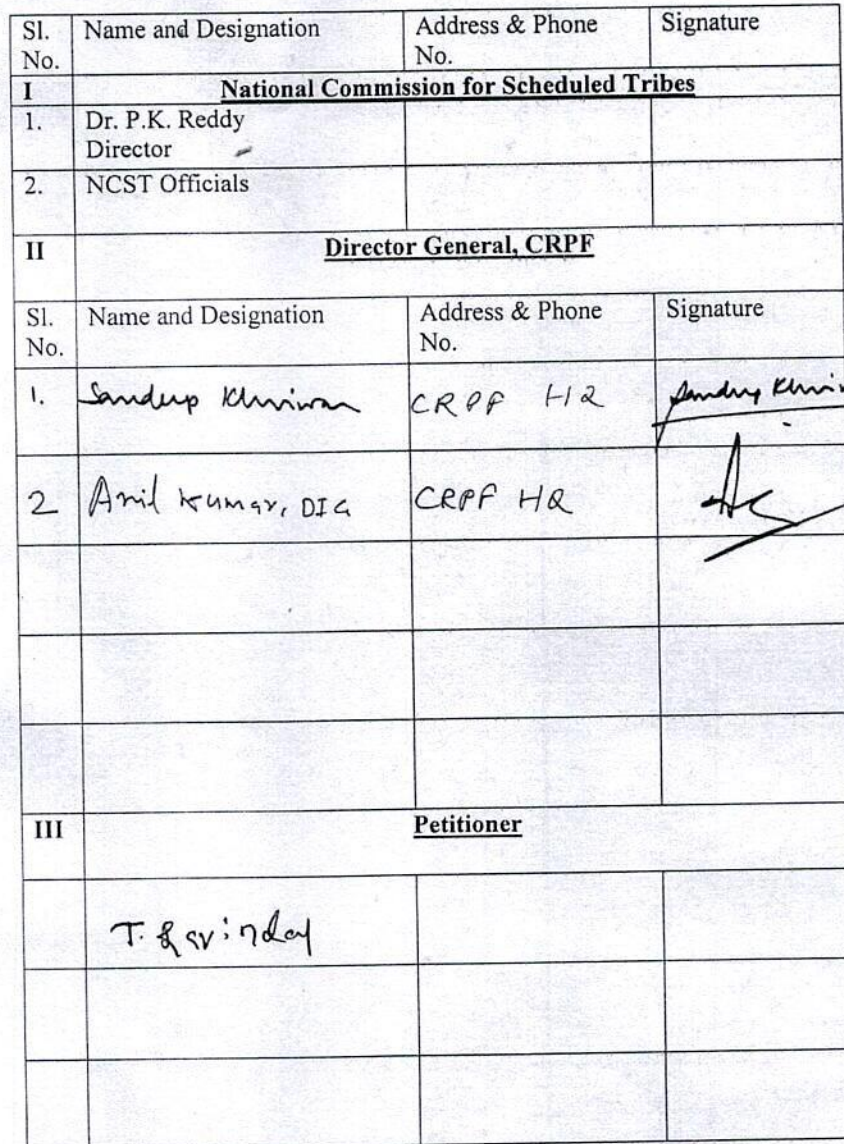 Sl. No. Name and Designation Address & Phone No. Signature
I National Commission for Scheduled Tribes
1. Dr. P.K. Reddy Director
2. NCST Officials
II Director General, CRPF
Sl. No. Name and Designation Address & Phone No. Signature
1. Sandeep CRPF HQ Sandeep
2 Anil Kumar, DIG CRPF HQ
III Petitioner
T. Ravinder